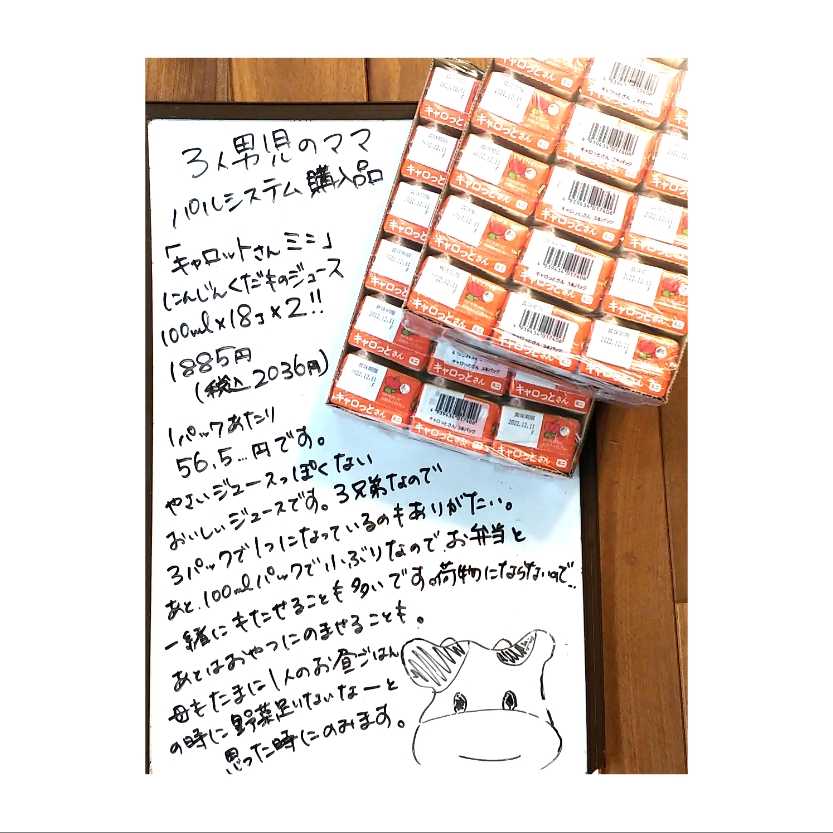 3人男児のママ
パルシステム購入品
「キャロットさんミニ」
にんじんくだものジュース
100ml×18コ×2!!
1885円
(税込2036円)
1パックあたり
56.5…円です。
やさいジュースっぽくない
おいしいジュースです。3兄弟なので
3パックで1つになっているのもありがたい。
あと、100mlパックで小ぶりなので、お弁当と
一緒にもたせることも多いです。荷物にならないので…
あとはおやつにのませることも。
母もたまに1人のお昼ごはん
の時に野菜足りないなーと
思った時にのみます。
キャロっとさん ミニ
キャロっとさん 3本パック
4939634017406
賞味期限
2022.12.11